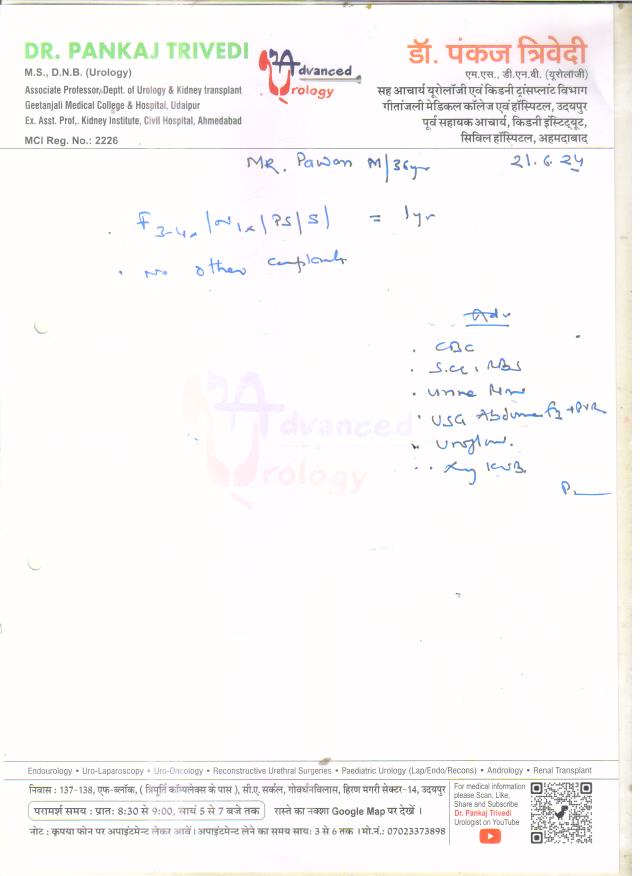 DR. PANKAJ TRIVEDI
M.S., D.N.B. (Urology)
Associate Professor, Deptt. of Urology & Kidney transplant
Geetanjali Medical College & Hospital, Udaipur
Ex. Asst. Prof,. Kidney Institute, Civil Hospital, Ahmedabad
MCI Reg. No.: 2226
Advanced
Urology
डॉ. पंकज त्रिवेदी
एम.एस., डी.एन.बी. (यूरोलॉजी)
सह आचार्य यूरोलॉजी एवं किडनी ट्रांसप्लांट विभाग
गीतांजली मेडिकल कॉलेज एवं हॉस्पिटल, उदयपुर
पूर्व सहायक आचार्य, किडनी इंस्टिट्यूट,
सिविल हॉस्पिटल, अहमदाबाद
MR. Pawan M/36yr 21.6.24
F3-4x/N1x/PS/S) = 1yr
. No other complaints
Adv
. CBC
. S.Cr, RBS
. Urine
. USG Abdomen + PVR
. Uroflow.
. Xray KUB.
Advanced
Urology
Endourology • Uro-Laparoscopy • Uro-Oncology • Reconstructive Urethral Surgeries • Paediatric Urology (Lap/Endo/Recons) • Andrology • Renal Transplant
निवास : 137-138, एफ-ब्लॉक, ( त्रिमूर्ति कॉम्पलेक्स के पास ), सी.ए. सर्कल, गोवर्धनविलास, हिरण मगरी सेक्टर-14, उदयपुर
परामर्श समय : प्रात: 8:30 से 9:00, सायं 5 से 7 बजे तक रास्ते का नक्शा Google Map पर देखें ।
नोट : कृपया फोन पर अपाइंटमेन्ट लेकर आवें । अपाइंटमेन्ट लेने का समय सायं: 3 से 6 तक । मो.नं.: 07023373898
For medical information
please Scan, Like,
Share and Subscribe
Dr. Pankaj Trivedi
Urologist on YouTube